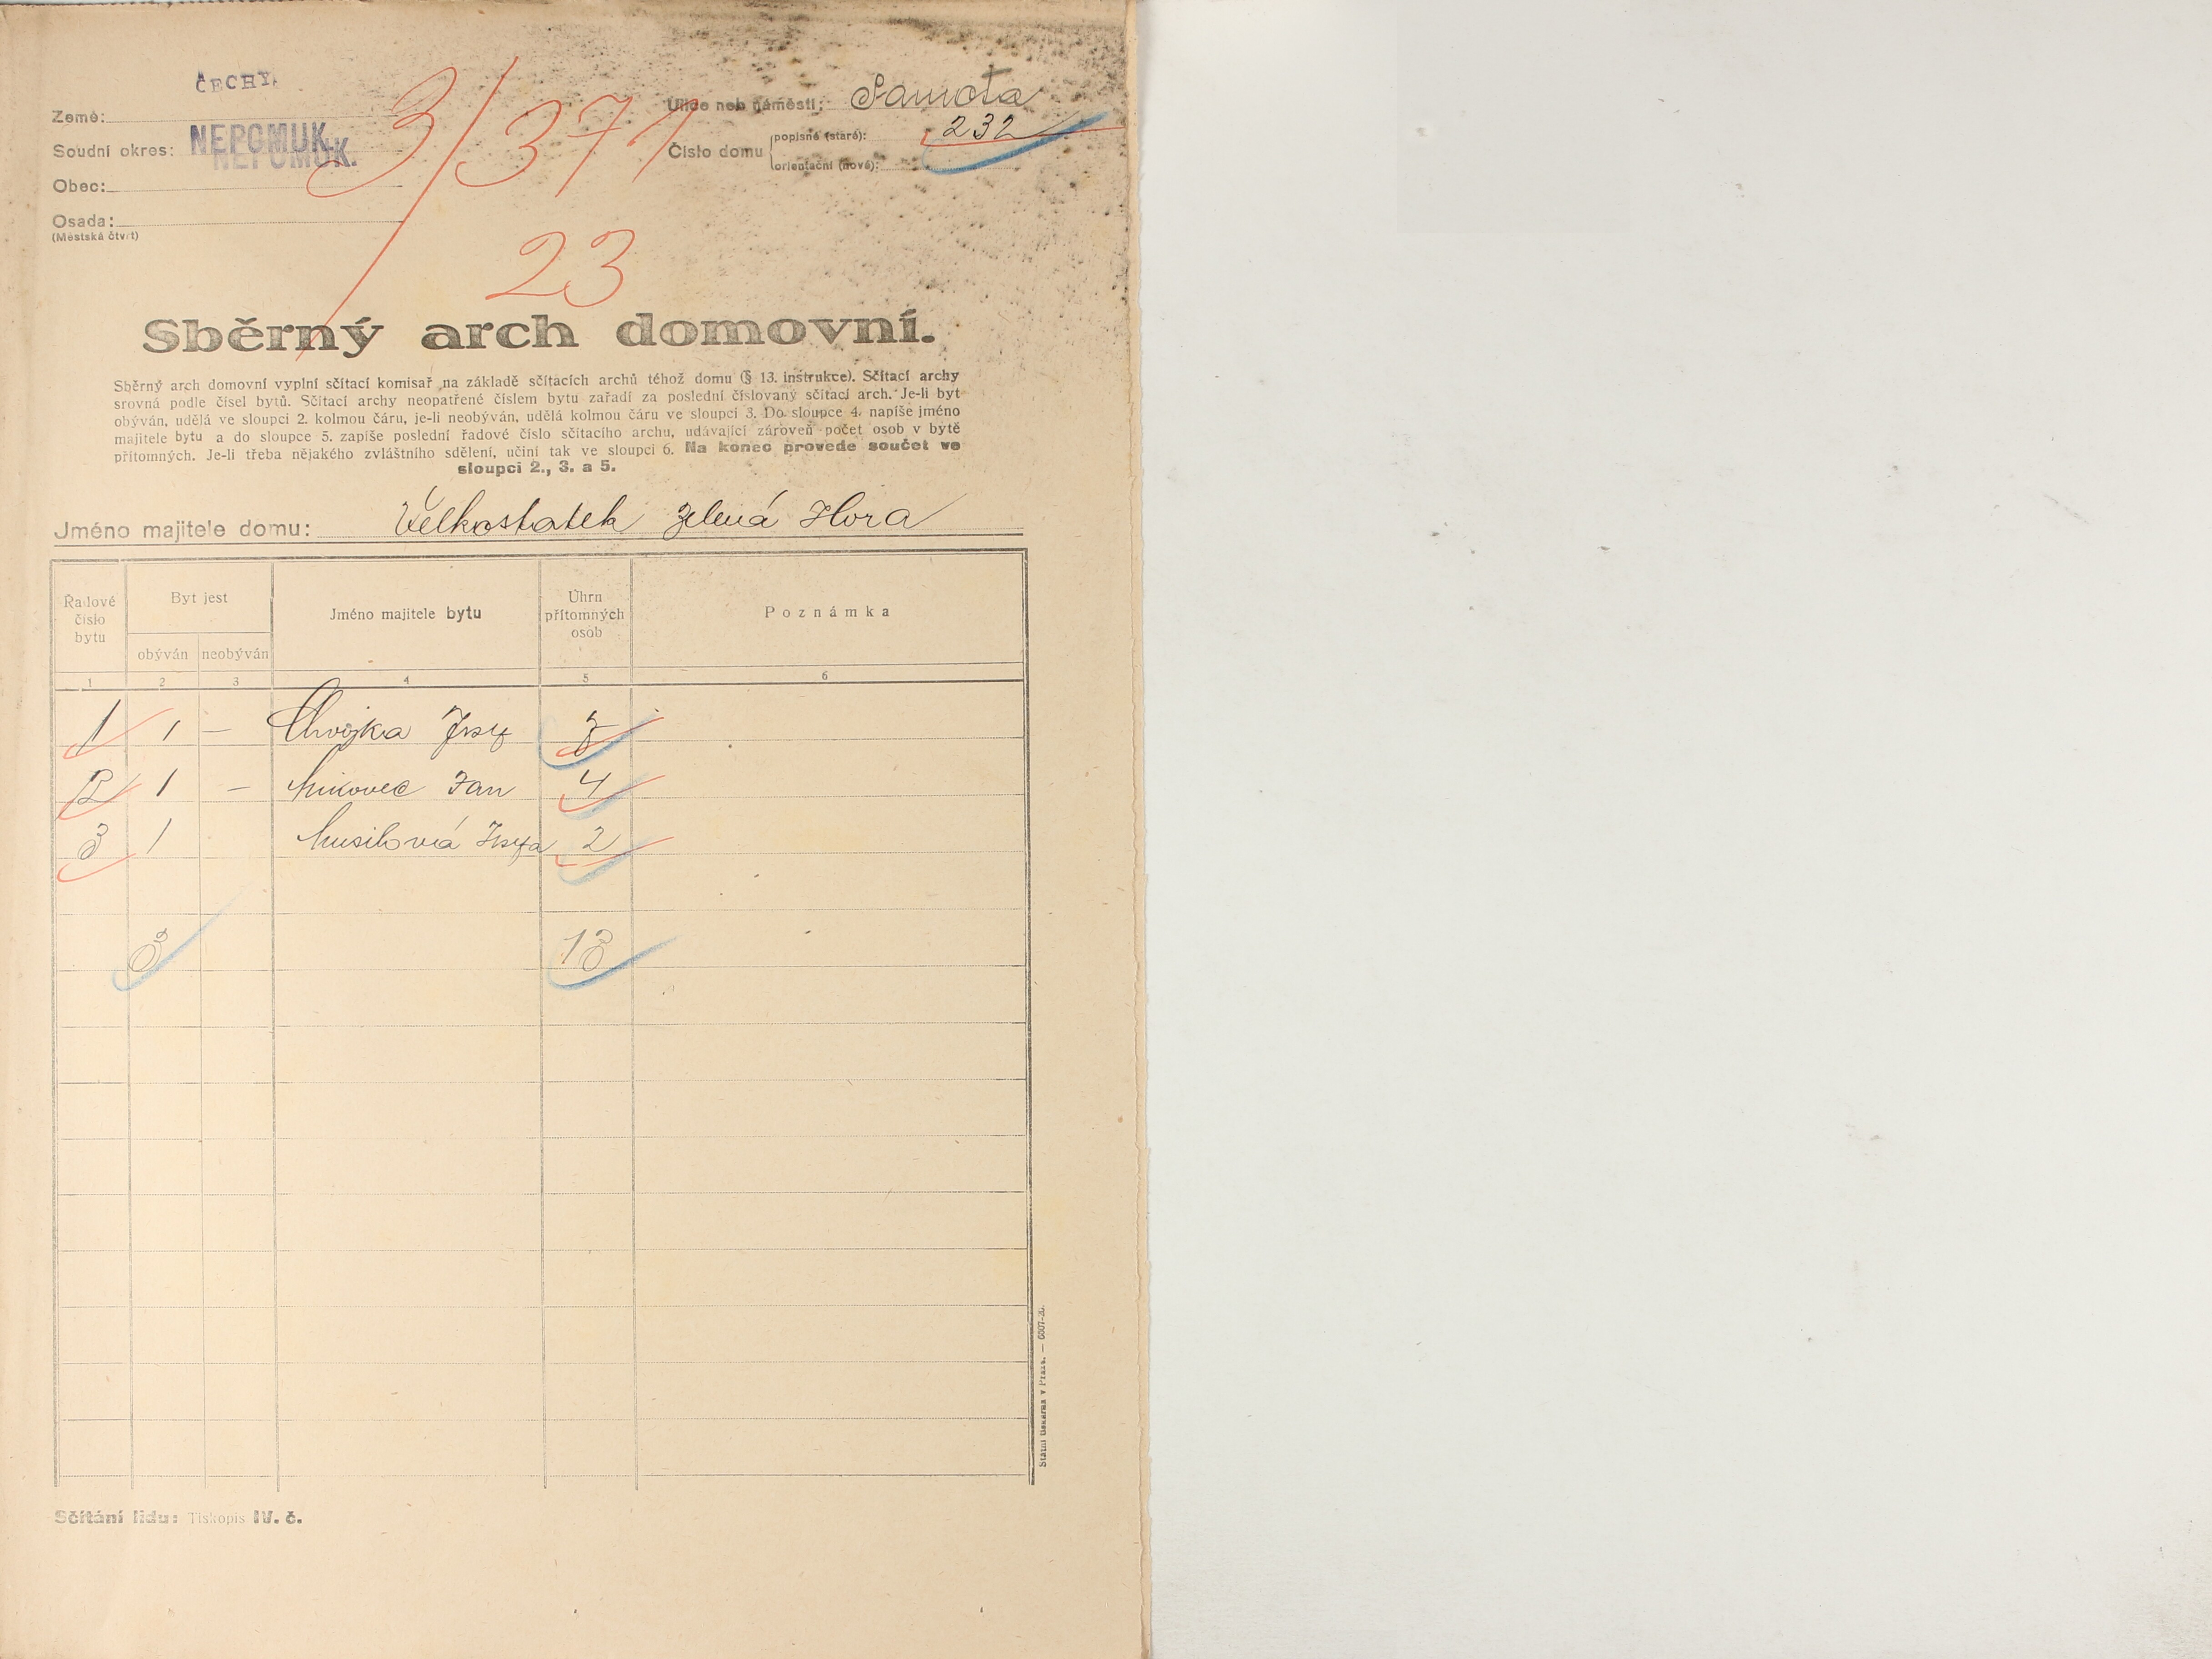 ČECHY.
Země:
Soudní okres: NEPOMUK.
NEPOMUK.
Obec:
Osada:
(Městská čtvrt)
3/371
23
Ulice neb náměstí: Samota
Číslo domu
popisné (staré): 232
orientační (nové):
Sběrný arch domovní.
Sběrný arch domovní vyplní sčítací komisař na základě sčítacích archů téhož domu (§ 13. instrukce). Sčítací archy
srovná podle čísel bytů. Sčítací archy neopatřené číslem bytu zařadí za poslední číslovaný sčítací arch. Je-li byt
obýván, udělá ve sloupci 2. kolmou čáru, je-li neobýván, udělá kolmou čáru ve sloupci 3. Do sloupce 4. napíše jméno
majitele bytu a do sloupce 5. zapíše poslední řadové číslo sčítacího archu, udávající zároveň počet osob v bytě
přítomných. Je-li třeba nějakého zvláštního sdělení, učiní tak ve sloupci 6. Na konec provede součet ve
sloupci 2., 3. a 5.
Jméno majitele domu: Velkostatek Zelená Hora
Řadové číslo bytu
Byt jest
obýván neobýván
Jméno majitele bytu
Úhrn přítomných osob
Poznámka
1 2 3 4 5 6
1 1 — Chvojka Josef
2 1 — Mikovec Jan 4
3 1 Musilová Josefa 2
3 13
Státní tiskárna v Praze. — 6807-20.
Sčítání lidu: Tiskopis IV. č.